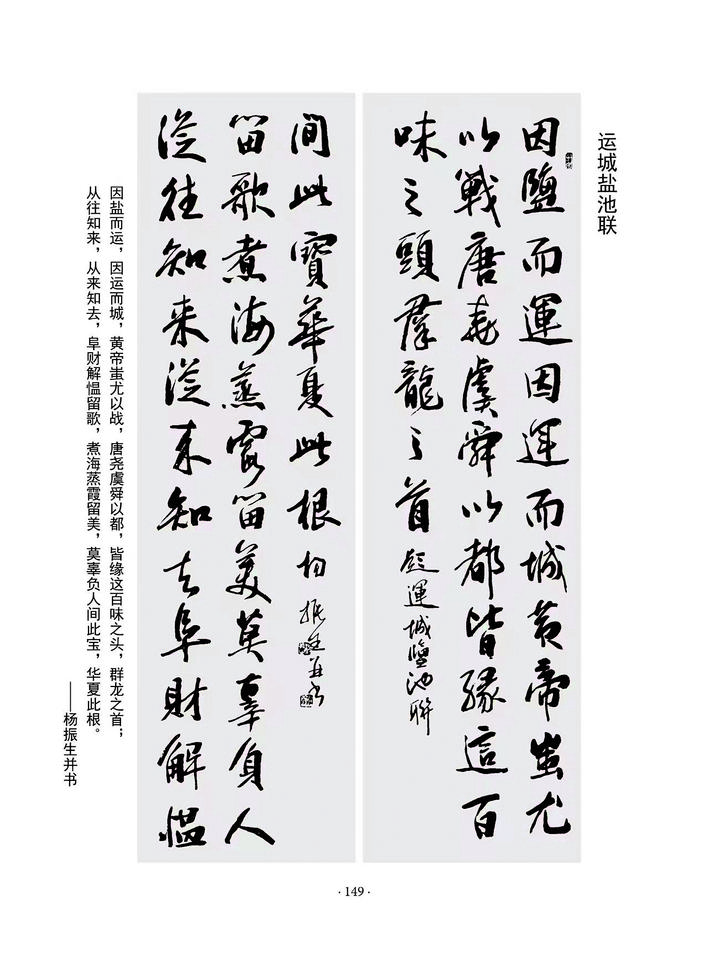 运城盐池联
因鹽而運因運而城黄帝蚩尤
以戰唐堯虞舜以都皆緣這百
味之頭羣龍之首
題運城鹽池聯
從往知来從来知去阜財解愠
留歌煮海蒸霞留美莫辜負人
間此寶華夏此根
杨振生并书
因盐而运，因运而城，黄帝蚩尤以战，唐尧虞舜以都，皆缘这百味之头，群龙之首；
从往知来，从来知去，阜财解愠留歌，煮海蒸霞留美，莫辜负人间此宝，华夏此根。
——杨振生并书
·149·